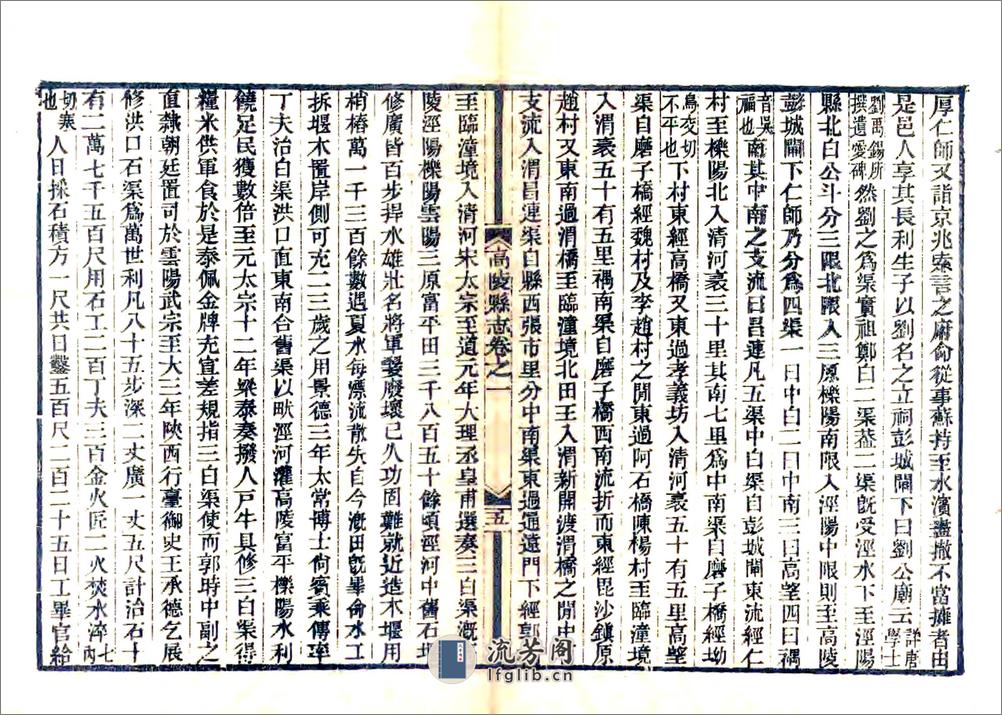 厚仁師又詣京兆索言之府俞從事蘇特至水濱盡撤不當擁者由
是邑人享其長利生子以劉名之立祠彭城閘下曰劉公廟云詳唐學士
劉禹錫所撰遺愛碑然劉之為渠實祖鄭白二渠葢二渠旣受涇水下至涇陽
縣北白公斗分三限北限入三原櫟陽南限入涇陽中限則至高陵
彭城閘下仁師乃分為四渠一曰中白二曰中南三曰高望四曰禑
音吳福也南其中南之支流曰昌連凡五渠中白渠自彭城閘東流經仁
村至櫟陽北入清河袤三十里其南七里為中南渠自磨子橋經坳
烏交切不平也下村東經高橋又東過孝義坊入清河袤五十有五里高望
渠自磨子橋經魏村及李趙村之閒東過阿石橋陳楊村至臨潼境
入渭袤五十有五里禑南渠自磨子橋西南流折而東經毘沙鎮原
趙村又東南過渭橋至臨潼境北田王入渭新開渡渭橋之閒中
支流入渭昌連渠白縣西張市里分中南渠東過通遠門下經郭
高陵縣志卷之一
五
至臨潼境入清河宋太宗至道元年大理丞皇甫選奏三白渠溉
陵涇陽櫟陽雲陽三原富平田三千八百五十餘頃涇河中舊石
修廣皆百步捍水雄壯名將軍翣廢壞已久功固難就近造木堰用
梢樁萬一千三百餘數遇夏水每漂流散失自今溉田旣畢命水工
拆堰木置岸側可充二三歲之用景德三年太常博士尚賓乘傳率
丁夫治白渠洪口面東南合舊渠以畎涇河灌高陵富平櫟陽水利
饒足民獲數倍至元太宗十二年梁泰奏撥人戸牛具修三白渠得
糧米供軍食於是泰佩金牌充宣差規指三白渠使而郭時中副之
直隸朝廷置司於雲陽武宗至大三年陝西行臺御史王承德乞展
修洪口石渠為萬世利凡八十五步深二丈廣一丈五尺計治石十
有二萬七千五百尺用石工二百丁夫三百金火匠二火焚水淬七內
切寒也人日採石積方一尺共日鑿五百尺二百二十五日工畢官給
流芳閣
lfglib.cn